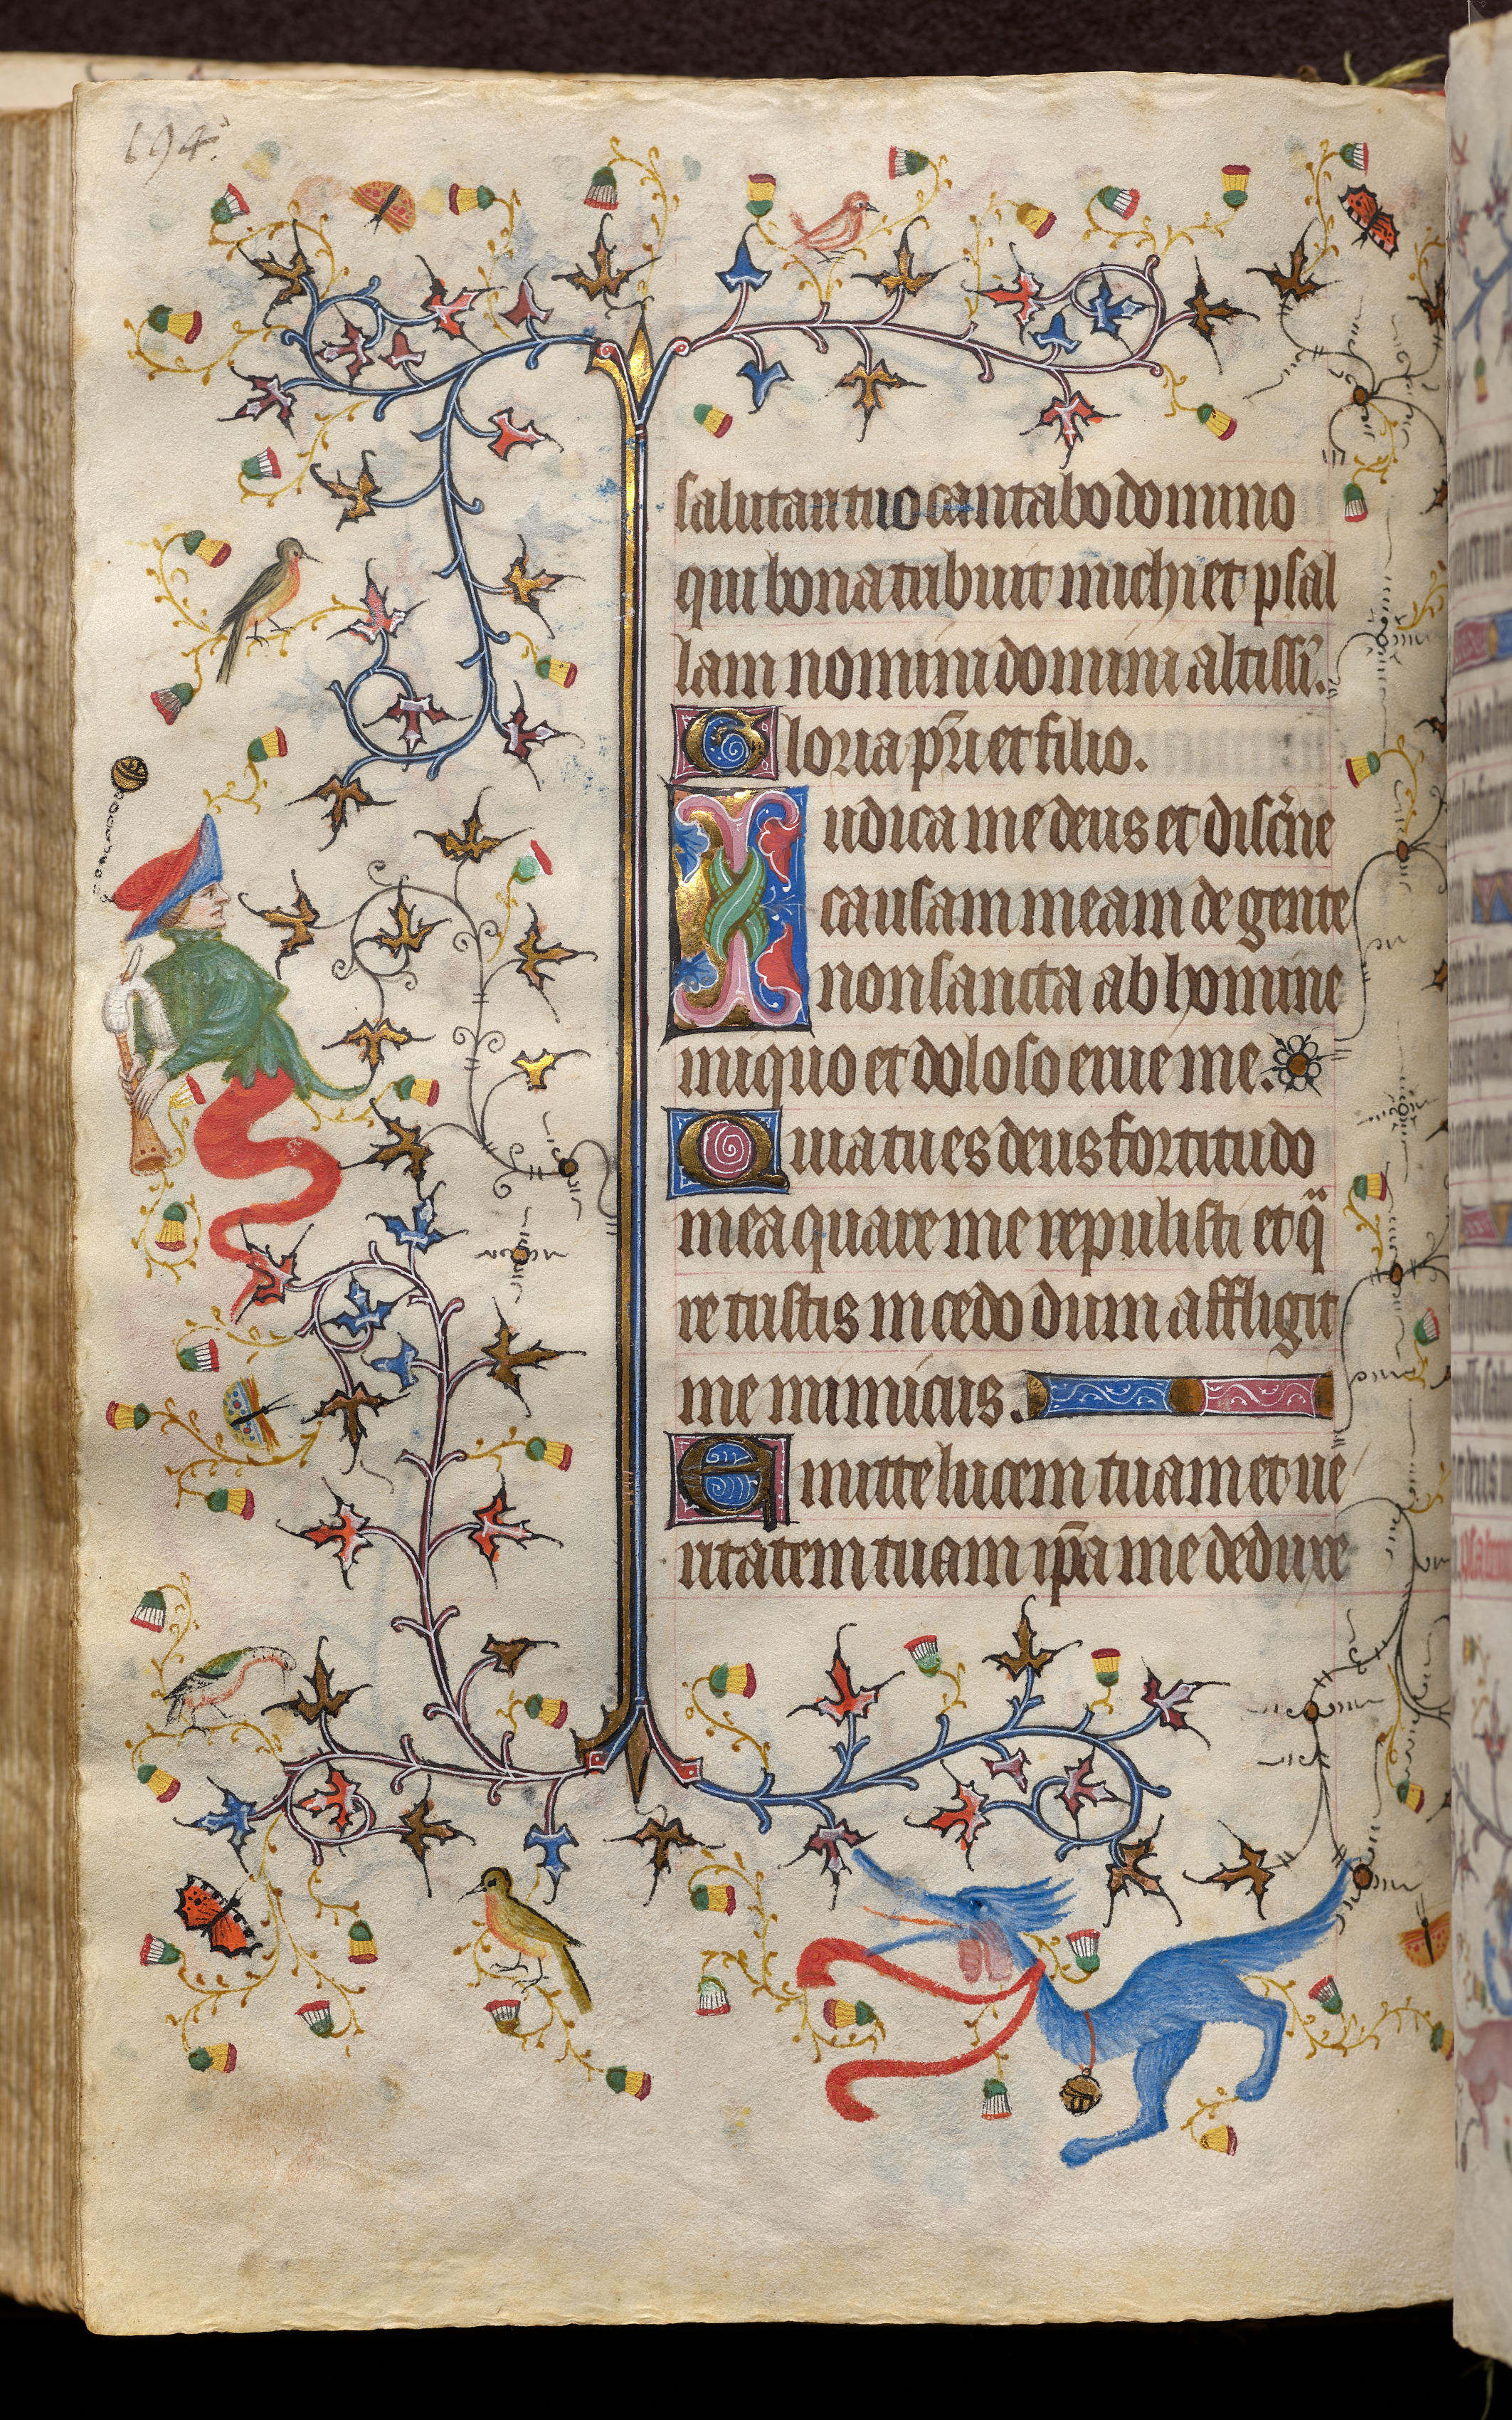 194.
salutari tuo cantabo domino
qui bona tribuit michi et psal
lam nomini domini altissi̅.
Gloria pr̅i et filio.
Iudica me deus et discer̅ne
causam meam de gente
non sancta ab homine
iniquo et doloso erue me.
Quia tu es deus fortitudo
mea quare me repulisti et qa̅
re tristis incedo dum affligit
me inimicus.
Emitte lucem tuam et ue
ritatem tuam ip̅a me deduxe